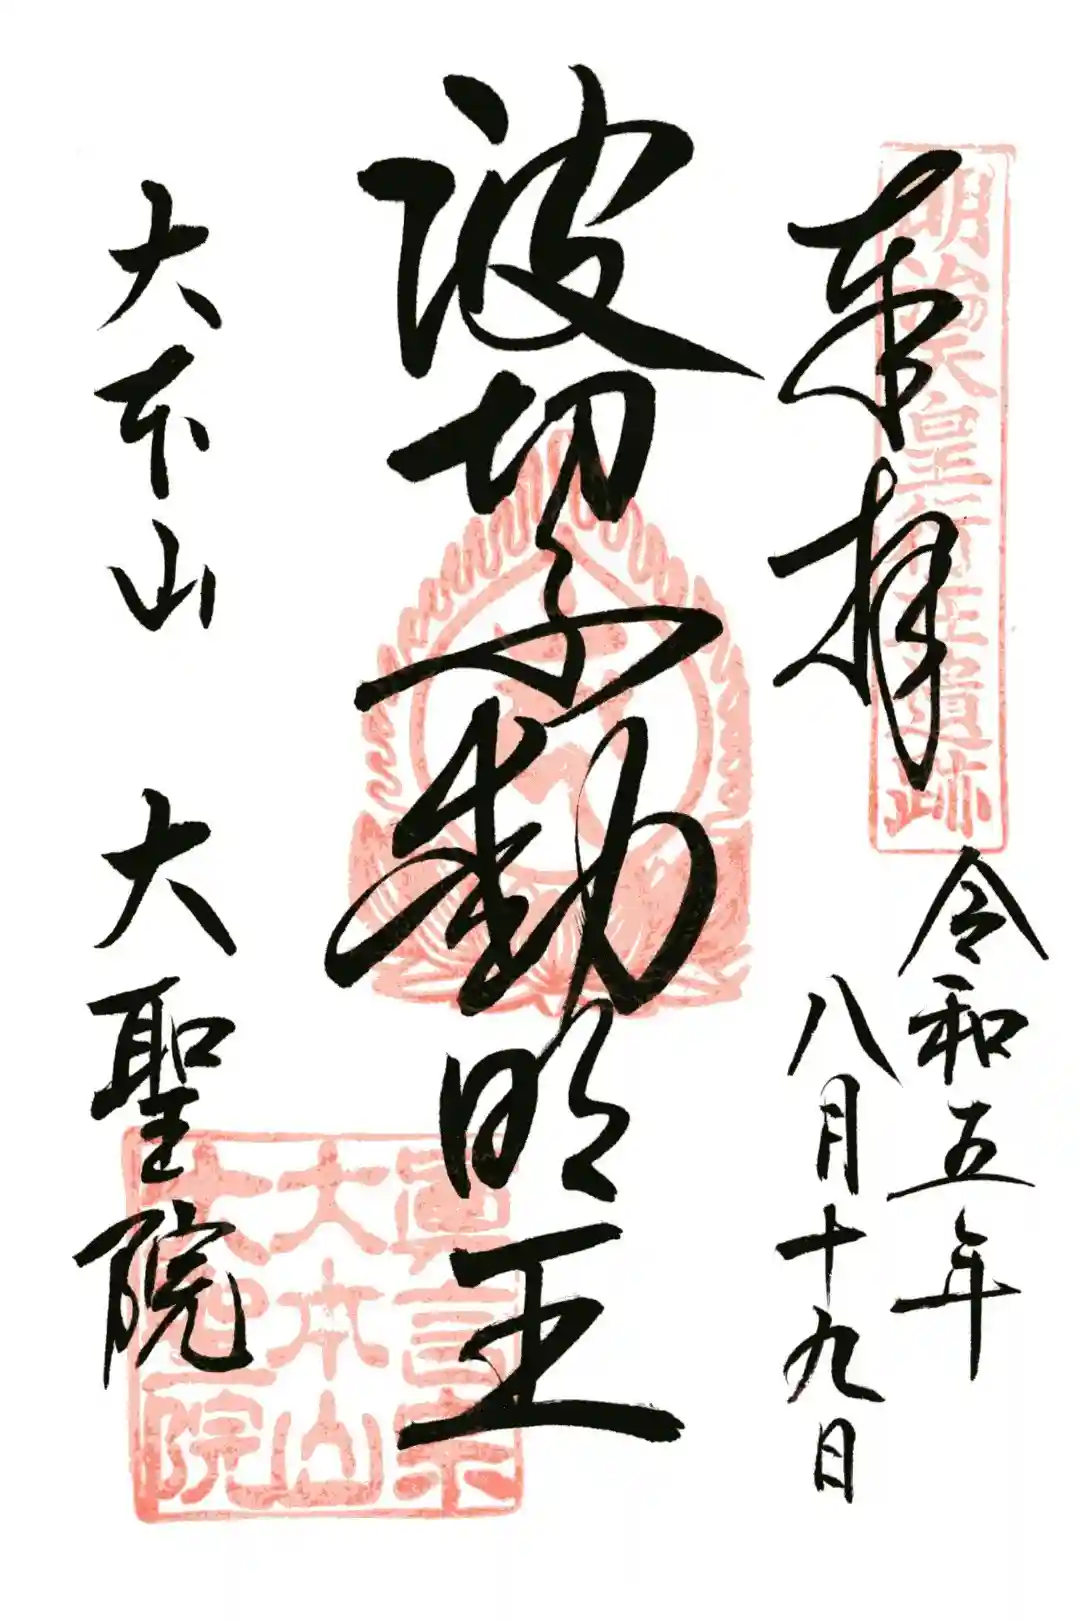 明治天皇行在遺跡
奉拝
令和五年
八月十九日
波切不動明王
大本山 大聖院
眞言宗
大本山
大聖院